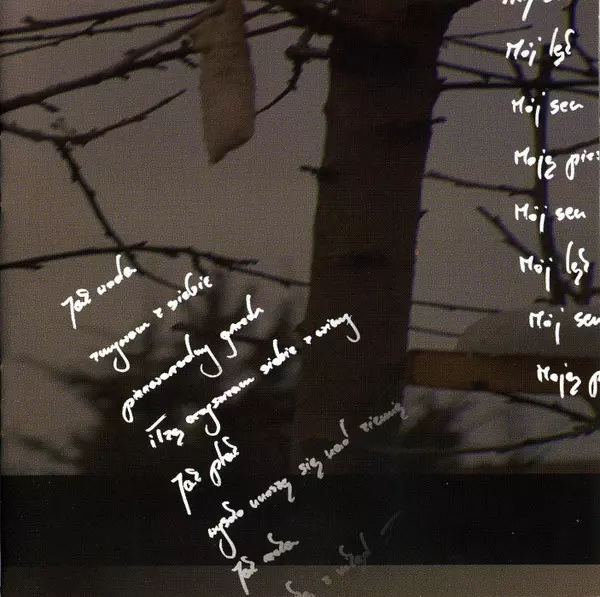 Mój lęk
Mój sen
Moją
Mój sen
Mój lęk
Mój sen
Moją
Jak woda
zmywam z siebie
pierworodny grzech
i łzą oczyszczam siebie z winy
Jak ptak
wysoko unoszę się nad ziemią
Jak woda
z